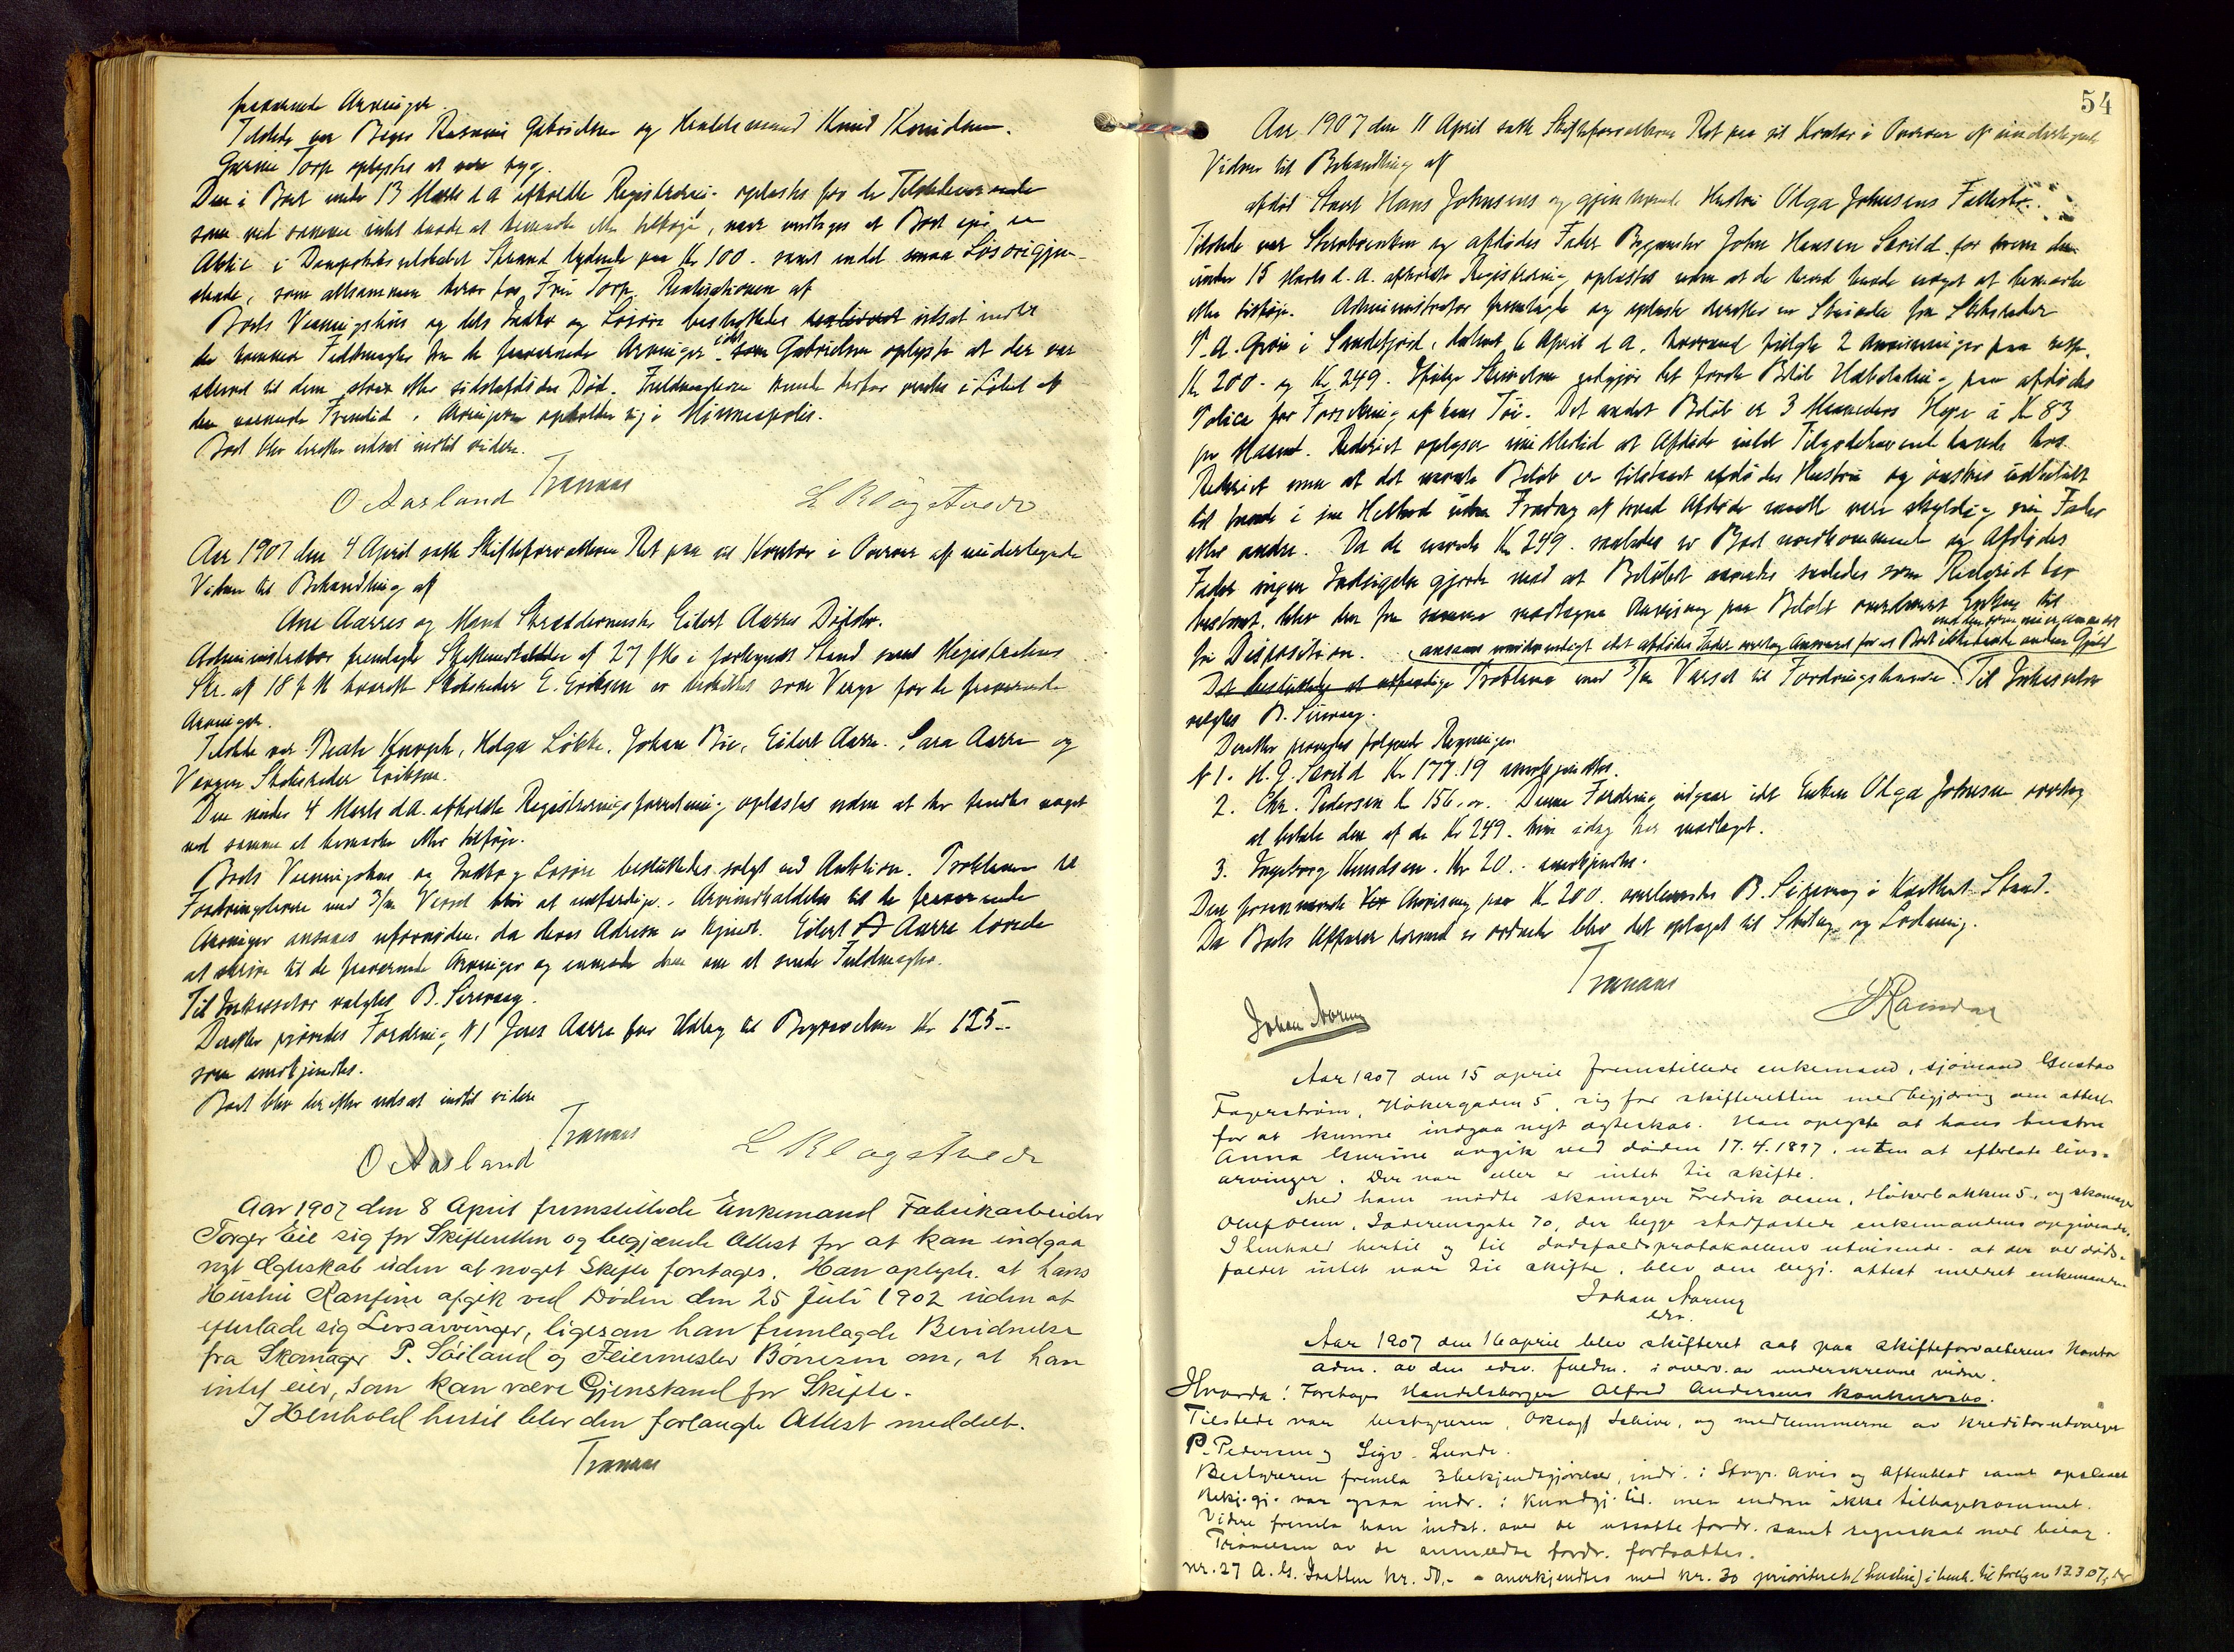 fraværende Arvinger.
Tilstede var Bager Rasmus Gabrielsen og Handelsmand Knud Knudsen.
Gurine Torp oplystes at være syg.
Den i Boet under 13 Marts d A afholdte Registrering oplæstes for de Tilstedeværende
som ved samme intet havde at bemærke eller tilføje, at Boet eier en
Aktie i Dampskibsselskabet Strand lydende paa Kr 100. samt endel smaa Løsøregjen-
stande, som allsammen beror hos Fru Torp. Realisationen af
Boets Vaaningshus og dets Indbo og Løsøre besluttedes udsat indtil
der kommer Fuldmagter fra de fraværende Arvinger idet Gabrielsen oplyste at der var
skrevet til dem strax efter sidstafdødes Død. Fuldmagterne kunde derfor ventes i Løbet af
den nærmeste Fremtid. Arvingerne opholder sig i Minneapolis.
Boet blev derefter udsat indtil videre.
O Aasland Tranaas L Kløgetvedt
Aar 1907 den 4 April satte Skifteforvalteren Ret paa sit Kontor i Overvær af undertegnede
Vidner til Behandling af
Ane Aarres og Mand Skræddermester Eilert Aarres Dødsbo.
Administrator fremlagte Skifteindkaldelse af 27 f M i forkyndt Stand samt Magistratens
Skr. af 18 f M hvorefter Skibsreder E. Eriksen er beskikket som Verge for de fraværende
Arvinger.
Tilstede var Beate Knoph, Helga Løkke, Johan Bie, Eilert Aarre, Sara Aarre og
Vergen Skibsreder Eriksen.
Den under 4 Marts d A. afholdte Registreringsforretning oplæstes uden at her fandtes noget
ved samme at bemærke eller tilføje.
Boets Vaaningshus og Indbo og Løsøre besluttedes solgt ved Auktion. Proklama til
Fordringshavere med 3/m Varsel blir at udfærdige. Arveindkaldelse til de fraværende
Arvinger ansaaes ufornøden, da deres Adresse er kjendt. Eilert Aarre lovede
at skrive til de fraværende Arvinger og anmode dem om at sende Fuldmagter.
Til Inkassator valgtes B. Sirevaag.
Derefter prøvedes Fordring N 1 Jens Aarre for Udlæg til Begravelsen Kr 125.-
som anerkjendtes.
Boet blev derefter udsat indtil videre
O Aasland Tranaas L Kløgetvedt
Aar 1907 den 8 April fremstillede Enkemand Fabrikarbeider
Torger Eie sig for Skifteretten og begjærede Attest for at kan indgaa
nyt Ægteskab uden at noget Skifte foretages. Han oplyste at hans
Hustru Ranfine afgik ved Døden den 25 Juli 1902 uden at
efterlade sig Livsarvinger, ligesom han fremlagde Bevidnelse
fra Skomager P. Søiland og Feiermester Børresen om, at han
intet eier, som kan være Gjenstand for Skifte.
I Henhold hertil blev den forlangte Attest meddelt.
Tranaas
54
Aar 1907 den 11 April satte Skifteforvalteren Ret paa sit Kontor i Overvær af undertegnede
Vidner til Behandling af
afdød Stuert Hans Johnsens og gjenlevende Hustru Olga Johnsens Fællesbo.
Tilstede var Sterboenken og afdødes Fader Bogmester John Hansen Sævild for hvem den
under 15 Marts d. A. afholdte Registrering oplæstes uden at de herved havde noget at bemærke
eller tilføje. Administrator fremlagte og oplæste derefter en Skrivelse fra Skibsreder
P. A. Grøn i Sandefjord, dateret 6 April d A, hvorved fulgte 2 Anvisninger paa resp.
Kr 200.- og Kr 249. Ifølge Skrivelsen udgjør det første Beløb Udbetaling paa afdødes
Police for Forsikring af hans Tøi. Det andet Beløb er 3 Maaneders Hyre à Kr 83
pr Maaned. Rederiet oplyser imidlertid at Afdøde intet Tilgodehavende havde hos
Rederiet men at det nævnte Beløb er tilstaaet afdødes Hustru og ønskes udbetalt
til hende i sin Helhed uden Fradrag af hvad Afdøde maatte være skyldig sin Fader
eller andre. Da de nævnte Kr 249. saaledes er Boet uvedkommende og Afdødes
Fader ingen Indsigelse gjorde mod at Beløbet anvendes saaledes som Rederiet har
bestemt, blev den fra samme modtagne Anvisning paa Beløbet overleveret Enken til
fri Disposition.
Det besluttedes at udfærdige Proklama med 3/m Varsel til Fordringshavere. Til Inkassator
valgtes B. Sirevaag.
Derefter prøvedes følgende Regninger
N 1. H. J. Sævild Kr 177.19 anerkjendtes.
2. Chr. Pedersen Kr 156. Denne Fordring udgaar idet Enken Olga Johnsen overtog
at betale den af de Kr 249. hun idag har modtaget.
3. Ingeborg Knudsen. Kr 20. anerkjendtes.
Den foran nævnte Anvisning paa Kr 200. overleveredes B. Sirevaag i Kvitteret Stand.
Da Boets Affærer hermed er ordnede blev det optaget til Slutning og Lodning.
Tranaas
Johan Noreng
Aar 1907 den 15 april fremstillede enkemand, sjømand Gustav
Fagerstrøm, Høkergaden 5, sig for skifteretten med begjæring om attest
for at kunne indgaa nyt ægteskab. Han oplyste at hans hustru
Anna Gurine avgik ved døden 17.4.1897, uten at efterlate livs-
arvinger. Der var eller er intet til skifte.
Med ham mødte skomager Fredrik Olsen, Høkerbakken 5, og skomager
Oluf Olsen, Jæderensgate 70, der begge stadfæstede enkemandens opgivende.
I henhold hertil og til dødsfaldsprotokollens utvisende at der ved døds-
faldet intet var til skifte, blev den begj. attest meddelt enkemanden.
Johan Noreng
edsv.
Aar 1907 den 16 april blev skifteret sat paa skifteforvalterens kontor
adm. av den edsv. fuldm. i overv. av underskrevne vidner.
Hvorda! Foretages Handelsborger Alfred Andersens konkursbo.
Tilstede var bestyreren, Overs Schive, og medlemmerne av kreditorutvalget
P. Pedersen og Sigv. Lunde.
Bestyreren fremla 3 bekjendtgjørelser, indr. i Stvgr. Avis og Aftenblad samt opslaaet
Bekj.gj. var ogsaa indr. i Kundgj. tid. men endnu ikke tilbagekommet.
Videre fremla han indst. over de utsatte fordr. samt regnskab med bilag.
Prøvelsen av de anmeldte fordr. fortsattes.
nr. 27 A. G. Kr. 50,- anerkjendtes med kr. 30 prioritert (husleie) i henh. til